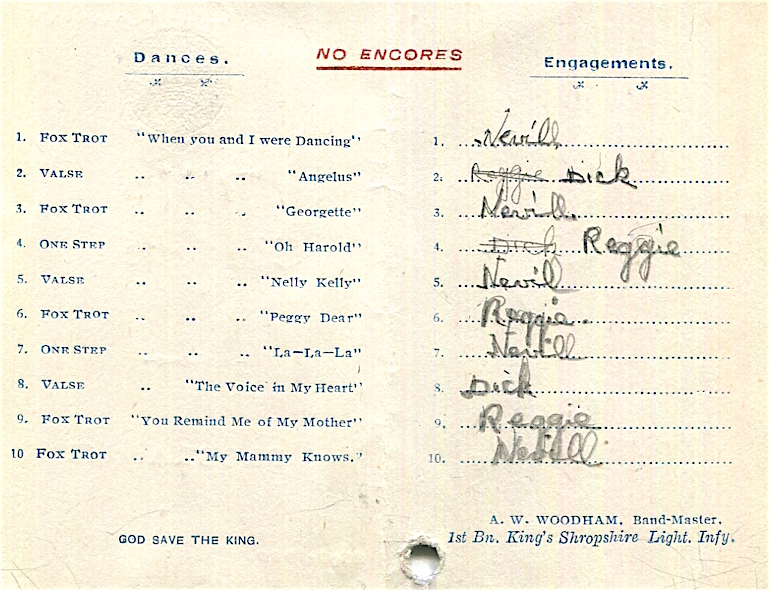 Dances.
NO ENCORES
Engagements.
1. FOX TROT "When you and I were Dancing"
2. VALSE .. .. .. "Angelus"
3. FOX TROT .. .. .. "Georgette"
4. ONE STEP .. .. .. "Oh Harold"
5. VALSE .. .. .. "Nelly Kelly"
6. FOX TROT .. .. .. "Peggy Dear"
7. ONE STEP .. .. .. "La-La-La"
8. VALSE .. "The Voice in My Heart"
9. FOX TROT "You Remind Me of My Mother"
10 FOX TROT .. .. "My Mammy Knows."
GOD SAVE THE KING.
1. Nevill
2. Reggie Dick
3. Nevill
4. Dick Reggie
5. Nevil
6. Reggie.
7. Nevill
8. Dick
9. Reggie
10. Nevill
A. W. WOODHAM, Band-Master,
1st Bn. King's Shropshire Light. Infy.